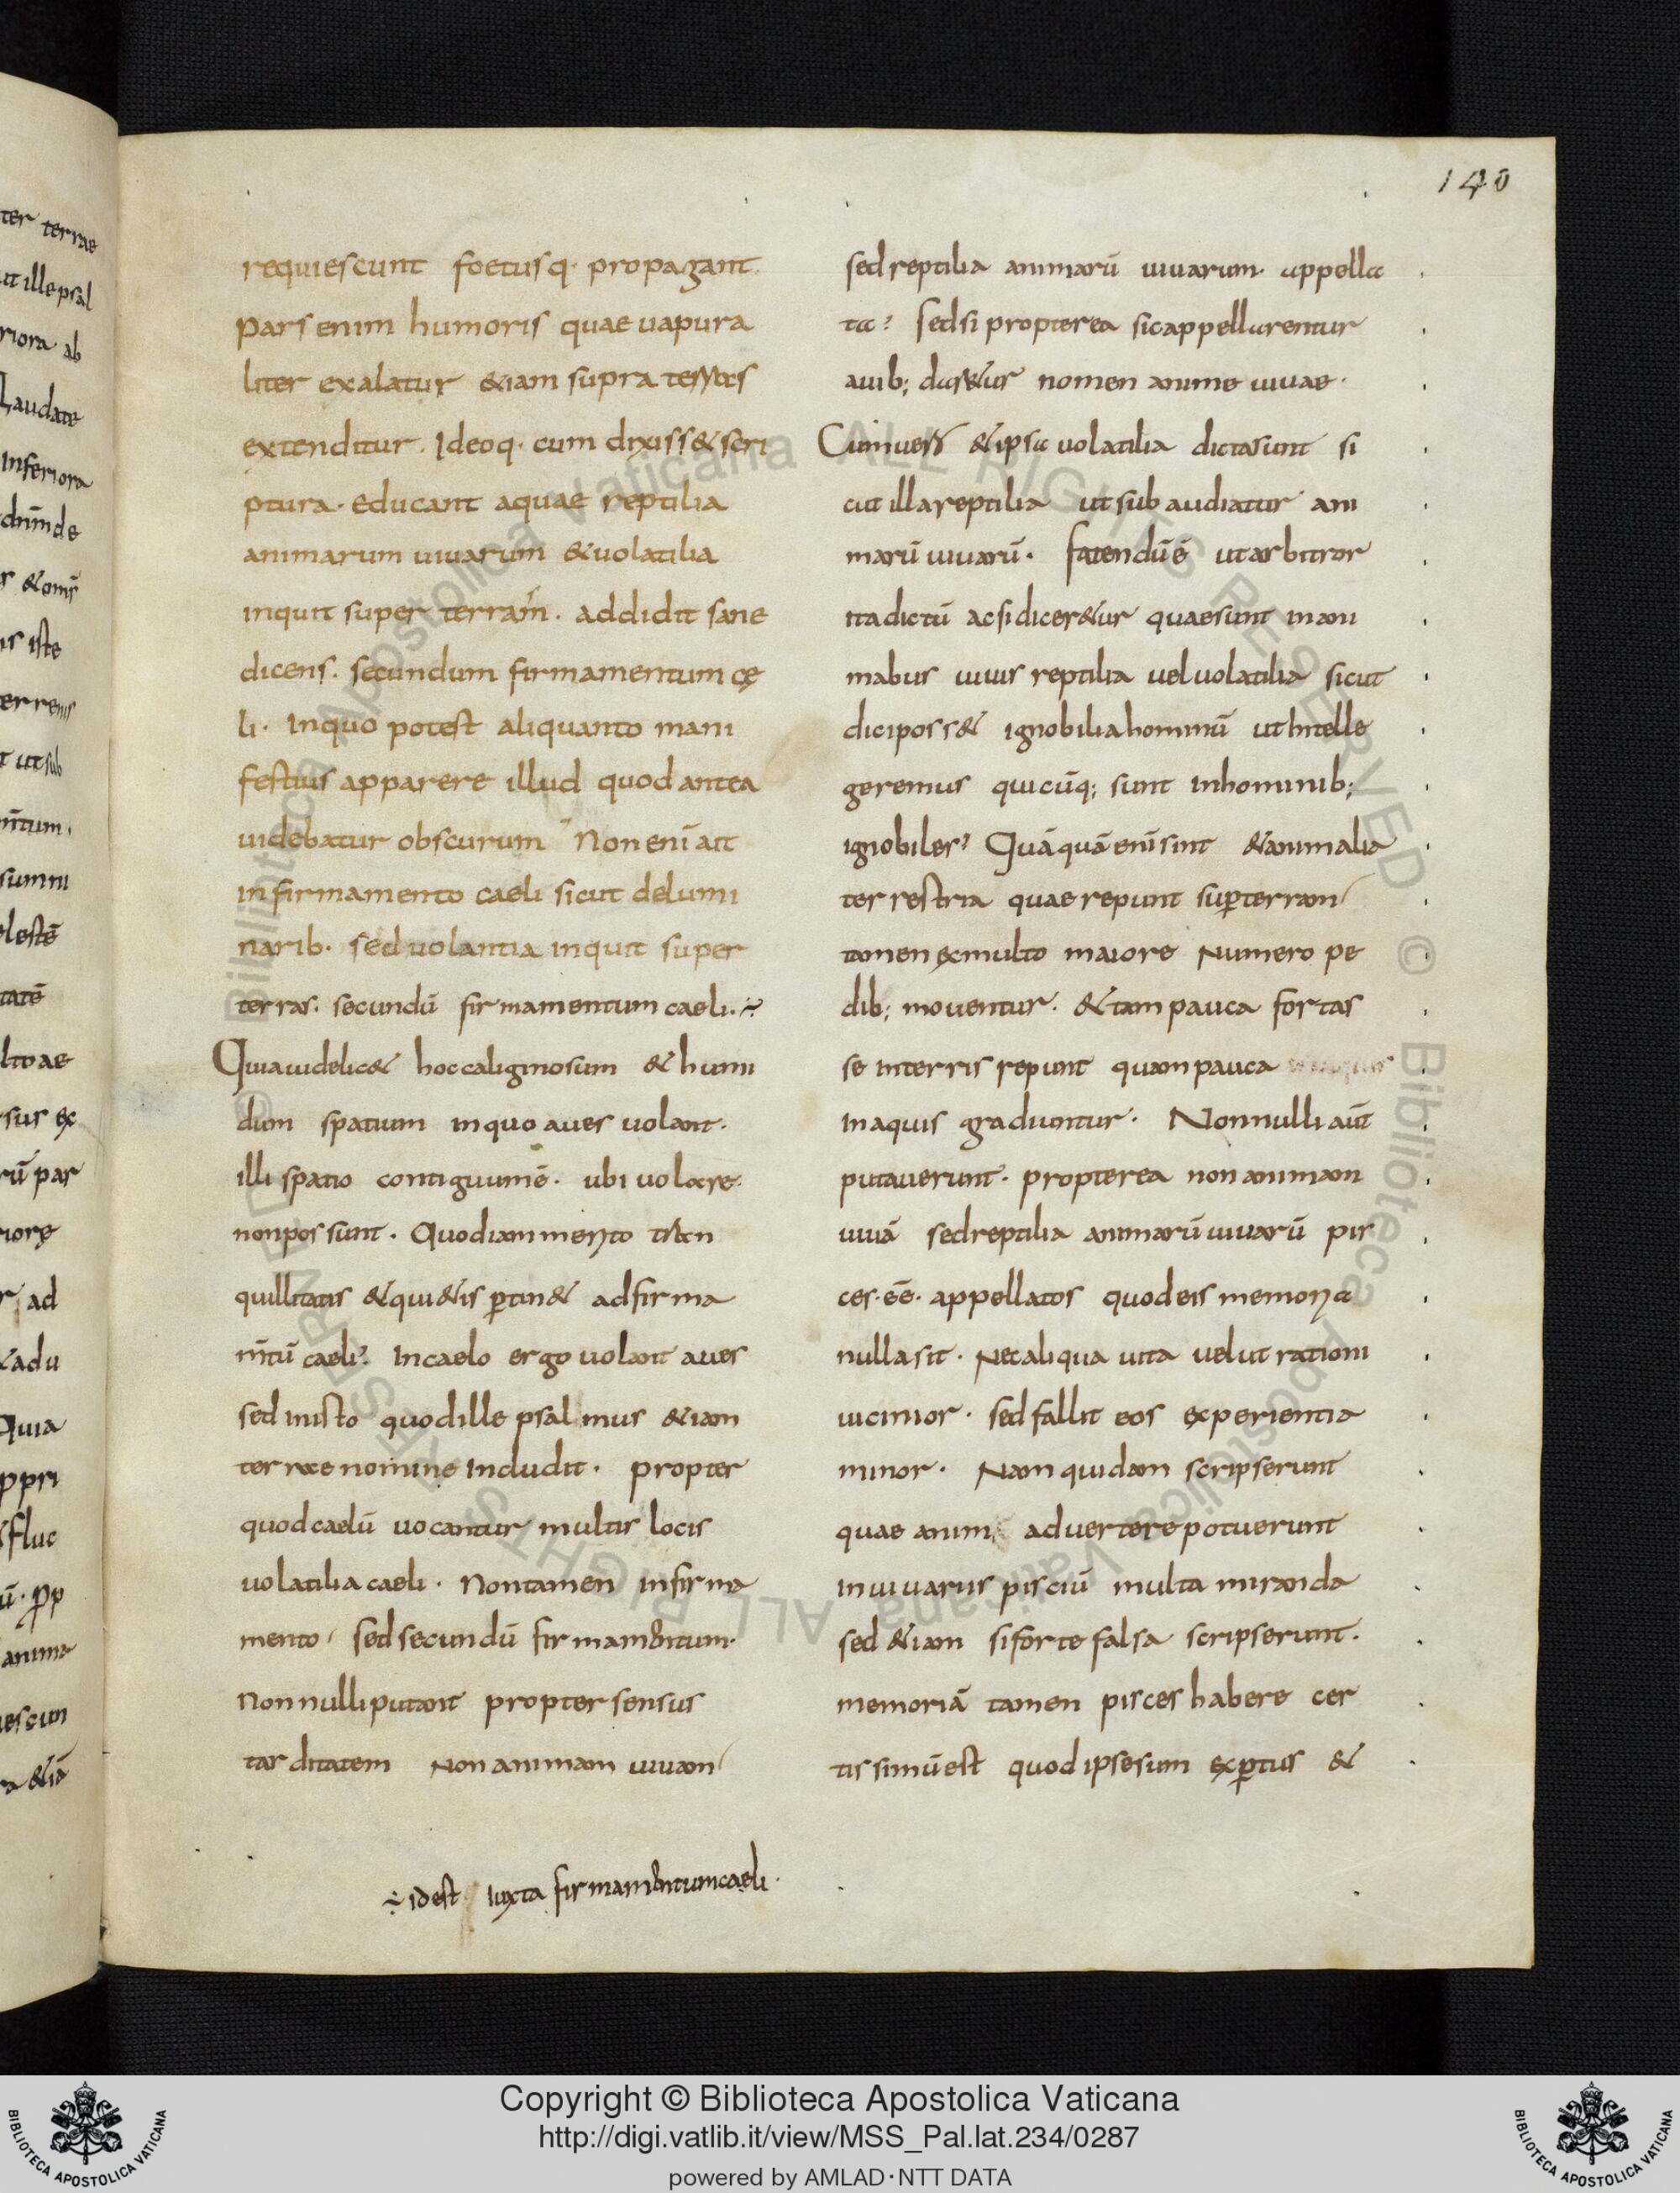 140
ter terrae
ut ille psal
riora ab
Laudate
inferiora
r & omſ
is iste
sub
summi
lestē
tatē
lto ae
sus ex
rū par
iore
r ad
adu
quia
ppri
fluc
anima
requiescunt foetusq· propagant.
pars enim humoris quae uapura
liter exalatur &iam supra terras
extenditur. Ideoq· cum dixiss& scri
ptura· educant aquae reptilia
animarum uiuarum &uolatilia
inquit super terram. addidit sane
dicens. secundum firmamentum cę
li· inquo potest aliquanto mani
festius apparere illud quod antea
uidebatur obscurum Non enī ait
in firmamento caeli sicut delumi
narib· sed uolantia inquit super
terras. secundū firmamentum caeli. ÷
Quia uidelic& hoc caliginosum & humi
dum spatium in quo aues uolant·
illi spatio contiguum ē· ubi uolare
non possunt. Quod iam merito tran
quillitatis &qui&is ptin& ad firma
m̄tū caeli? In caelo ergo uolant aues
sed in isto quod ille psalmus &iam
terrae nomine Includit· propter
quod caelū uocantur multis locis
uolatilia caeli· Non tamen in firma
mento, sed secundū firmamentum·
Non nulli putant propter sensus
tarditatem Non animam uiuam
÷ idest iuxta firmamentum caeli·
sed reptilia animarū uiuarum· appella
ta? Sed si propterea sic appellarentur
auib; dar&ur nomen anime uiuae·
Cum uero &ipsa uolatilia dicta sunt si
cut illa reptilia ut sub audiatur ani
marū uiuarū· fatendū ē ut arbitror
ita dictū ac si dicer&ur quae sunt in ani
mabus uiuis reptilia uel uolatilia sicut
dici poss& ignobilia hominū ut Intelle
geremus quicūq; sunt inhominib;
ignobiles? Quāquā enī sint &animalia
terrestria quae repunt sup terram
tamen ex multo maiore Numero pe
dib; mouentur· & tam pauca fortas
se Interris repunt quam pauca
In aquis graduntur· Non nulli aūt
putauerunt· propterea non animam
uiuā sed reptilia animarū uiuarū pis
ces· ēē· appellatos quod eis memoria
nulla sit· Nec aliqua uita uelut rationi
uicinior· sed fallit eos experientia
minor· Nam quidam scripserunt
quae anim aduertere potuerunt
In uiuariis pisciū multa miranda
sed &iam si forte falsa scripserunt.
memoriā tamen pisces habere cer
tissimū est quod ipse sum exptus &
© Biblioteca Apostolica Vaticana ALL RIGHTS RESERVED © Biblioteca Apostolica Vaticana ALL RIGHTS RESERVED
Copyright © Biblioteca Apostolica Vaticana
http://digi.vatlib.it/view/MSS_Pal.lat.234/0287
powered by AMLAD·NTT DATA
BIBLIOTECA APOSTOLICA VATICANA
BIBLIOTECA APOSTOLICA VATICANA